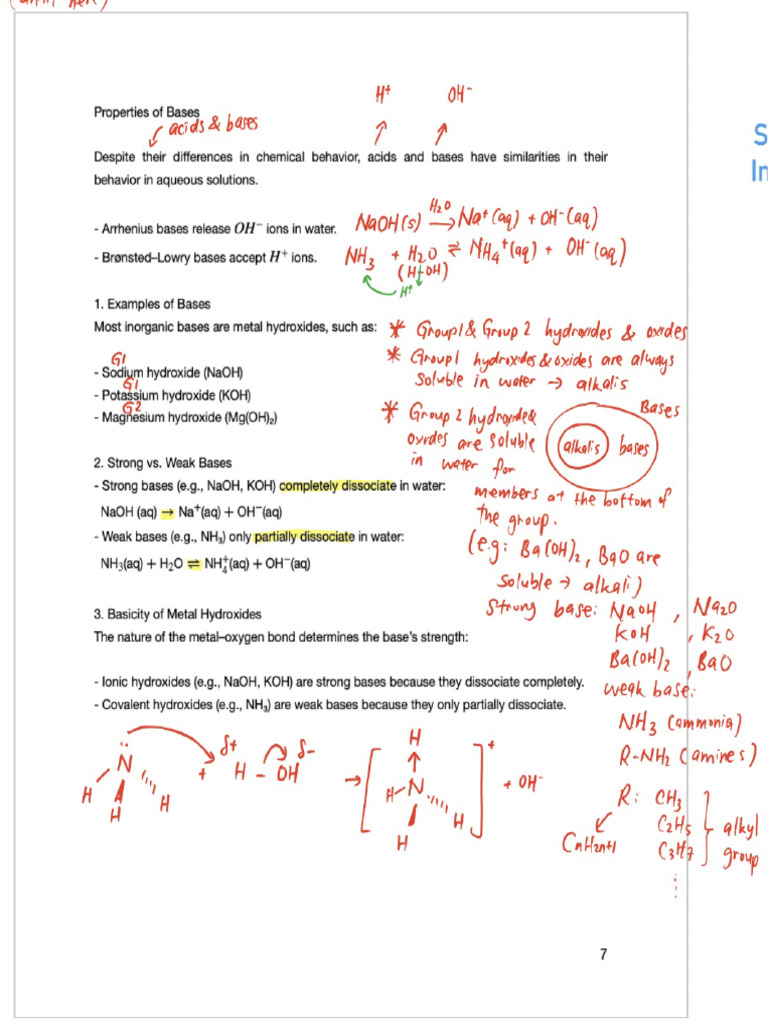 Properties of Bases
acids & bases
H+
OH-
Despite their differences in chemical behavior, acids and bases have similarities in their
behavior in aqueous solutions.
- Arrhenius bases release OH⁻ ions in water.
NaOH(s) →H2O Na+(aq) + OH-(aq)
- Brønsted–Lowry bases accept H⁺ ions.
NH3 + H2O ⇌ NH4+(aq) + OH-(aq)
(H+OH)
H+
1. Examples of Bases
Most inorganic bases are metal hydroxides, such as:
* Group1 & Group 2 hydroxides & oxides
* Group1 hydroxides & oxides are always
soluble in water → alkalis
G1
- Sodium hydroxide (NaOH)
G1
- Potassium hydroxide (KOH)
G2
- Magnesium hydroxide (Mg(OH)₂)
* Group 2 hydroxide &
oxides are soluble
in water for
members at the bottom of
the group.
(e.g: Ba(OH)2, BaO are
soluble → alkali)
Bases
alkalis
bases
2. Strong vs. Weak Bases
- Strong bases (e.g., NaOH, KOH) completely dissociate in water:
NaOH (aq) → Na⁺(aq) + OH⁻(aq)
- Weak bases (e.g., NH₃) only partially dissociate in water:
NH₃(aq) + H₂O ⇌ NH₄⁺(aq) + OH⁻(aq)
strong base: NaOH , Na2O
KOH , K2O
Ba(OH)2 , BaO
weak base:
NH3 (ammonia)
R-NH2 (amines)
R: CH3
C2H5
C3H7
⋮
alkyl
group
CnH2n+1
3. Basicity of Metal Hydroxides
The nature of the metal–oxygen bond determines the base's strength:
- Ionic hydroxides (e.g., NaOH, KOH) are strong bases because they dissociate completely.
- Covalent hydroxides (e.g., NH₃) are weak bases because they only partially dissociate.
N H H H + δ+ H - OH δ- → [H N H H H]+ + OH-
7
S
In